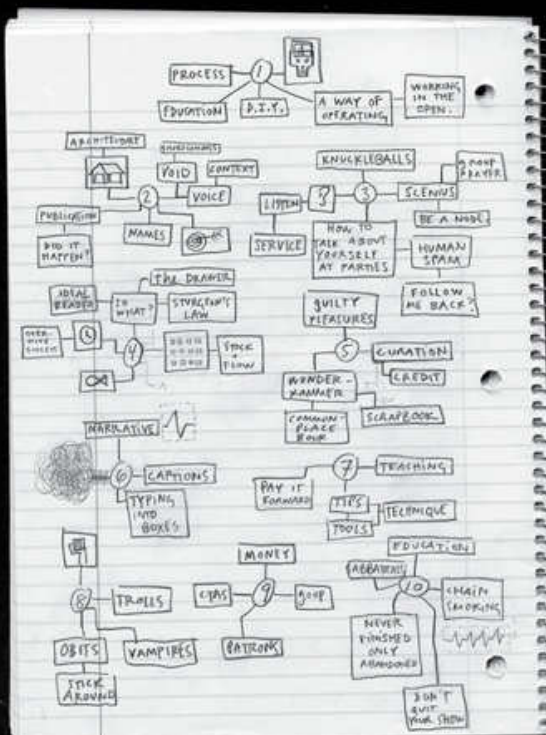 PROCESS
1
EDUCATION
D.I.Y.
A WAY OF
OPERATING
WORKING
IN THE
OPEN.
ARCHITECTURE
VOID
CONTEXT
2
VOICE
PUBLICATION
DID IT
HAPPEN?
NAMES
KNUCKLEBALLS
GROUP
PRAYER
LISTEN
?
3
SCENIUS
BE A NODE.
SERVICE
HOW TO
TALK ABOUT
YOURSELF
AT PARTIES
HUMAN
SPAM
FOLLOW
ME BACK?
THE DRAWER
IDEAL
READER
SO
WHAT?
STURGEON'S
LAW
4
STOCK
+
FLOW
GUILTY
PLEASURES
5
CURATION
CREDIT
WONDER-
KAMMER
SCRAPBOOK
COMMON-
PLACE
BOOK
NARRATIVE
6
CAPTIONS
TYPING
INTO
BOXES
7
TEACHING
PAY IT
FORWARD
TIPS
TECHNIQUE
TOOLS
8
TROLLS
OBITS
VAMPIRES
STICK
AROUND
MONEY
9
PATRONS
EDUCATION
10
CHAIN
SMOKING
NEVER
FINISHED
ONLY
ABANDONED
DON'T
QUIT
YOUR SHOW